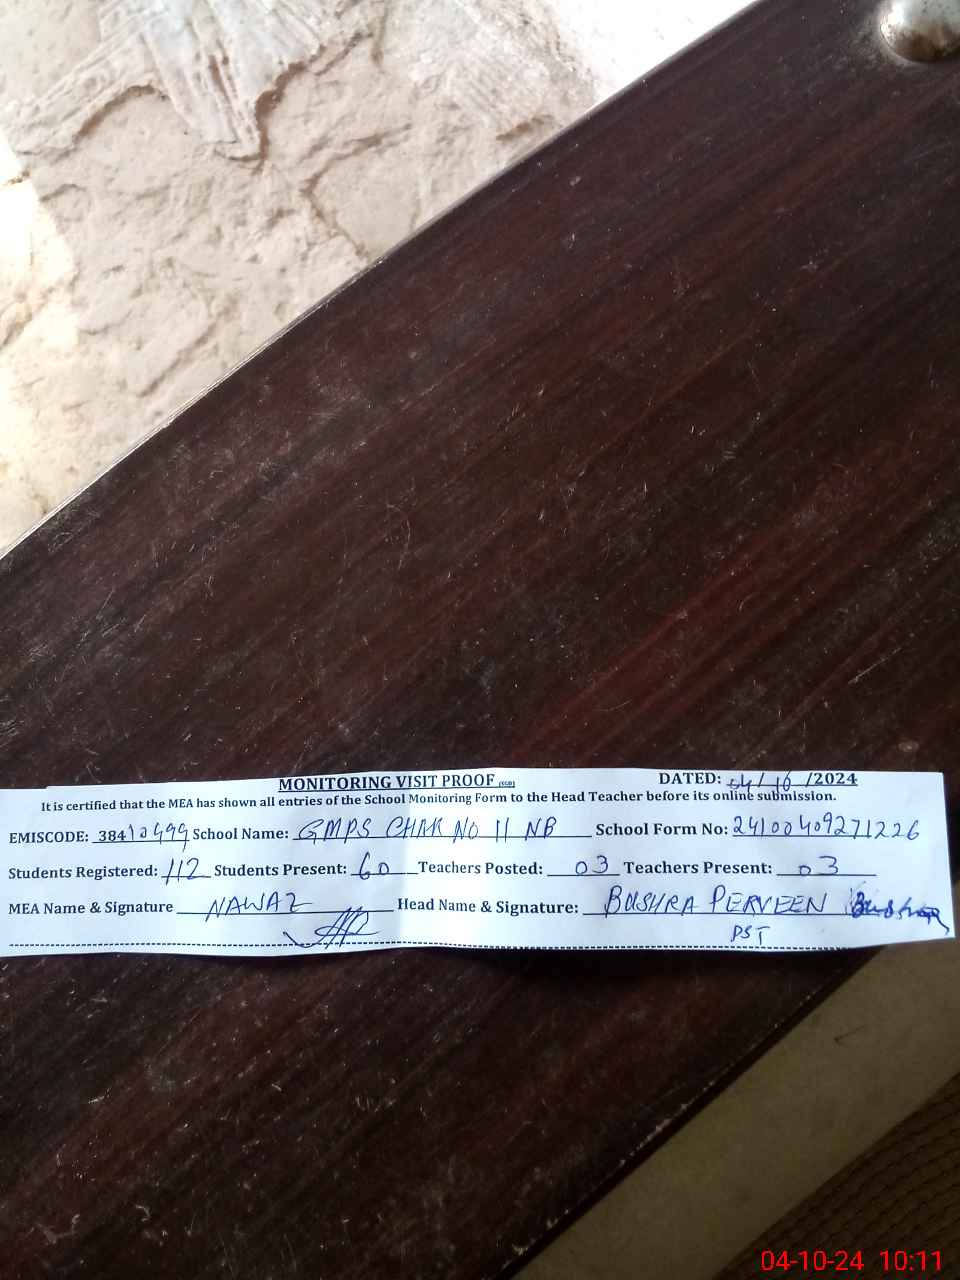 MONITORING VISIT PROOF (SGD) DATED: 04/10/2024
It is certified that the MEA has shown all entries of the School Monitoring Form to the Head Teacher before its online submission.
EMISCODE: 38410499 School Name: GMPS CHAK NO 11 NB School Form No: 24100409271226
Students Registered: 112 Students Present: 60 Teachers Posted: 03 Teachers Present: 03
MEA Name & Signature NAWAZ Head Name & Signature: BUSHRA PERVEEN Bushra
PST
04-10-24 10:11